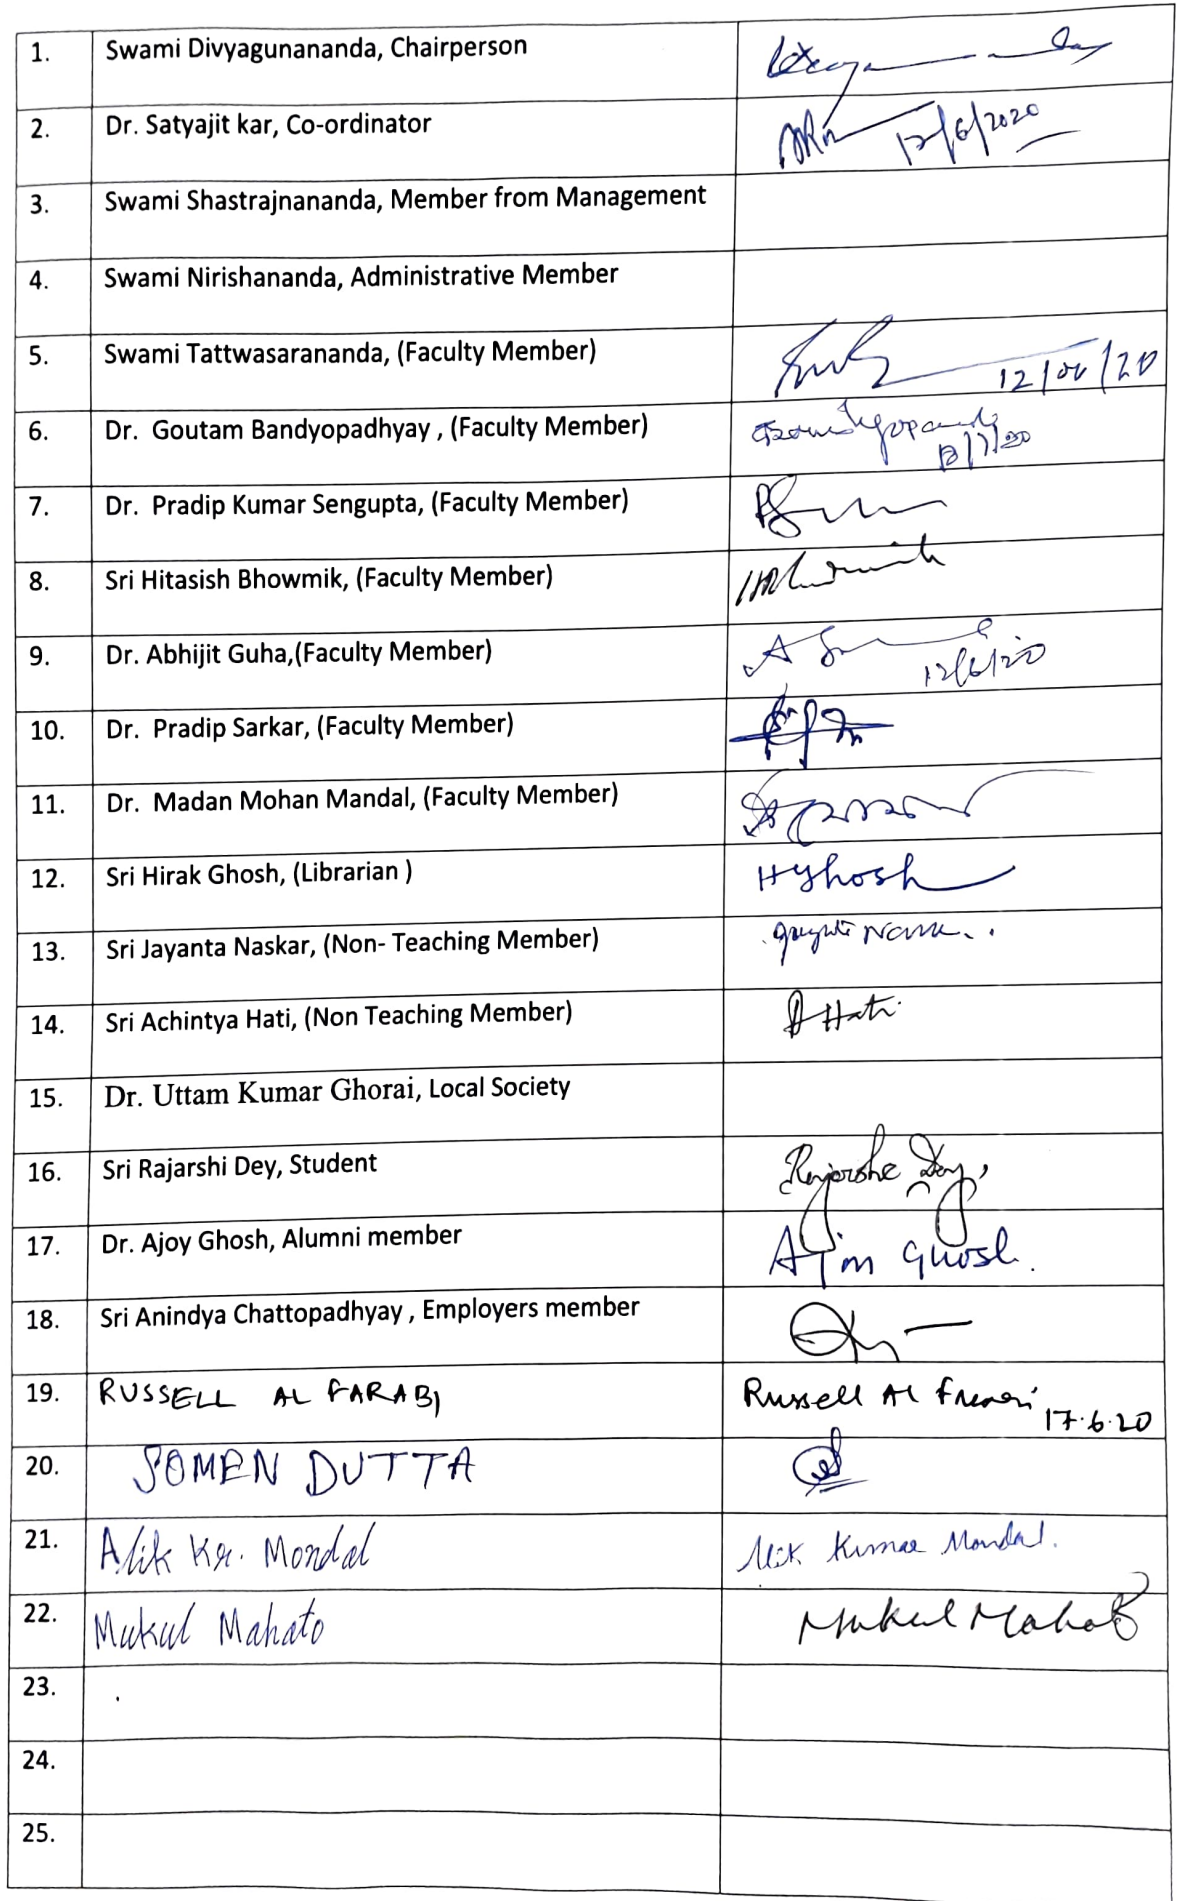 1. Swami Divyagunananda, Chairperson
2. Dr. Satyajit kar, Co-ordinator 12/6/2020
3. Swami Shastrajnananda, Member from Management
4. Swami Nirishananda, Administrative Member
5. Swami Tattwasarananda, (Faculty Member) 12/06/20
6. Dr. Goutam Bandyopadhyay , (Faculty Member)
7. Dr. Pradip Kumar Sengupta, (Faculty Member)
8. Sri Hitasish Bhowmik, (Faculty Member)
9. Dr. Abhijit Guha,(Faculty Member) 12/6/20
10. Dr. Pradip Sarkar, (Faculty Member)
11. Dr. Madan Mohan Mandal, (Faculty Member)
12. Sri Hirak Ghosh, (Librarian ) HGhosh
13. Sri Jayanta Naskar, (Non- Teaching Member)
14. Sri Achintya Hati, (Non Teaching Member) A Hati
15. Dr. Uttam Kumar Ghorai, Local Society
16. Sri Rajarshi Dey, Student Rajarshe Dey,
17. Dr. Ajoy Ghosh, Alumni member Ghosh.
18. Sri Anindya Chattopadhyay , Employers member
19. RUSSELL AL FARABI Russell Al Farabi 17.6.20
20. SOMEN DUTTA
21. Alik Kr. Mondal Alik Kumar Mondal.
22. Mukul Mahato Mukul Mahato
23.
24.
25.